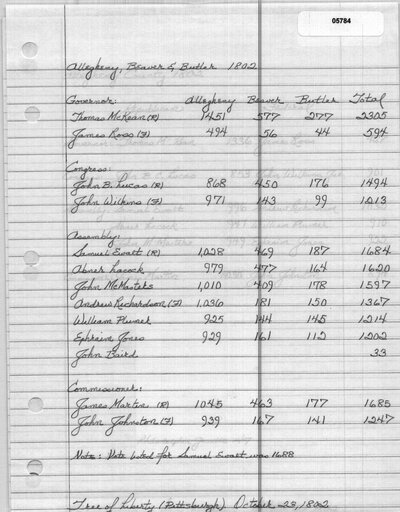 05784
Allegheny, Beaver & Butler 1802
Governor: Allegheny Beaver Butler Total
Thomas McKean (R) 1451 577 277 2305
James Ross (F) 494 56 44 594
Congress:
John B. Lucas (R) 868 450 176 1494
John Wilkins (F) 971 143 99 1,013
Assembly:
Samuel Ewalt (R) 1,028 469 187 1684
Abner Lacock 979 477 164 1620
John McMasters 1,010 409 178 1597
Andrew Richardson (F) 1,036 181 150 1367
William Plumer 925 144 145 1214
Ephraim Jones 929 161 112 1202
John Baird 33
Commissioner:
James Martin (R) 1045 463 177 1685
John Johnston (F) 939 167 141 1247
Note: Vote listed for Samuel Ewalt was 1688
Tree of Liberty (Pittsburgh) October 23, 1802